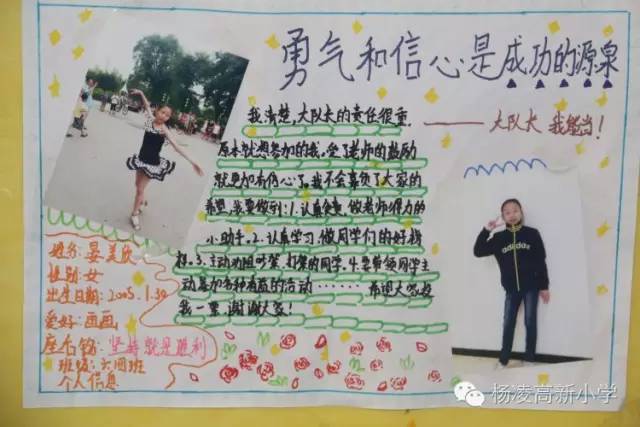 勇气和信心是成功的源泉
——大队长 我能当！
我清楚，大队长的责任很重.
原本就想参加的我，受了老师的鼓励
就更加有信心了。我不会辜负了大家的
希望，我要做到：1.认真负责，做老师得力的
小助手.2.认真学习，做同学们的好榜
样.3.主动劝阻吵架、打架的同学.4.要带领同学主
动参加各种有益的活动……希望大家投
我一票，谢谢大家！
姓名：晏美欣
性别：女
出生日期：2005.1.30
爱好：画画
座右铭：坚持就是胜利
班级：六四班
个人信息
adidas
杨凌高新小学